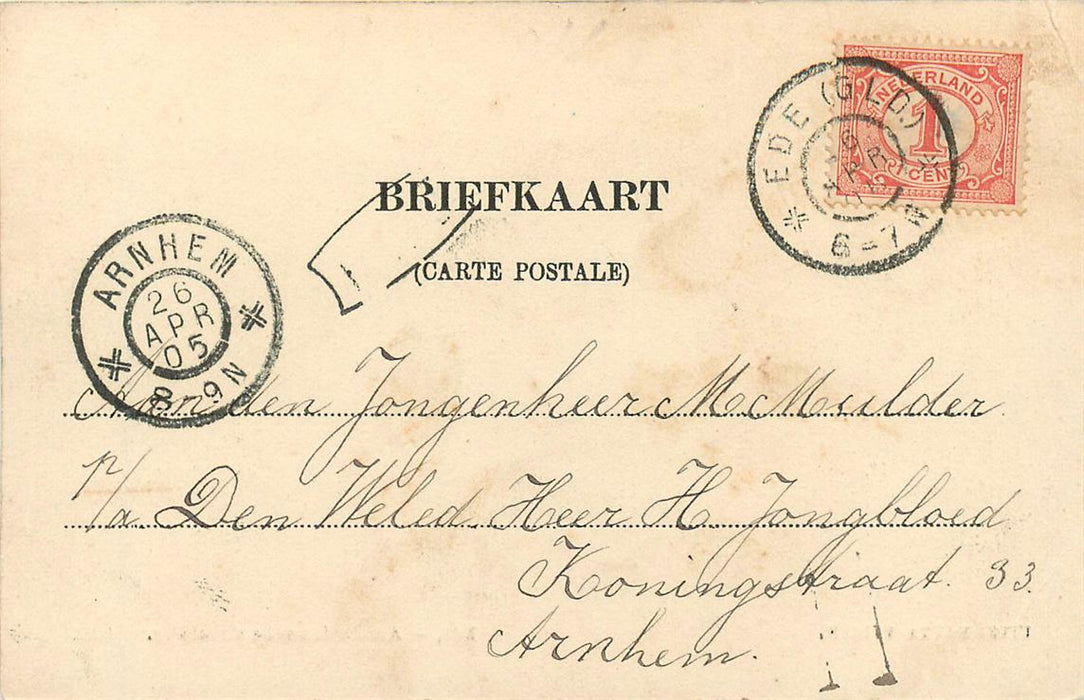 NEDERLAND
1
1 CENT
EDE (GLD.)
APR
6-7N
BRIEFKAART
(CARTE POSTALE)
ARNHEM
26
APR
05
8-9N
Aan den Jongenheer M Mulder
p/a. Den Weled. Heer H. Jongbloed
Koningstraat. 33.
Arnhem.